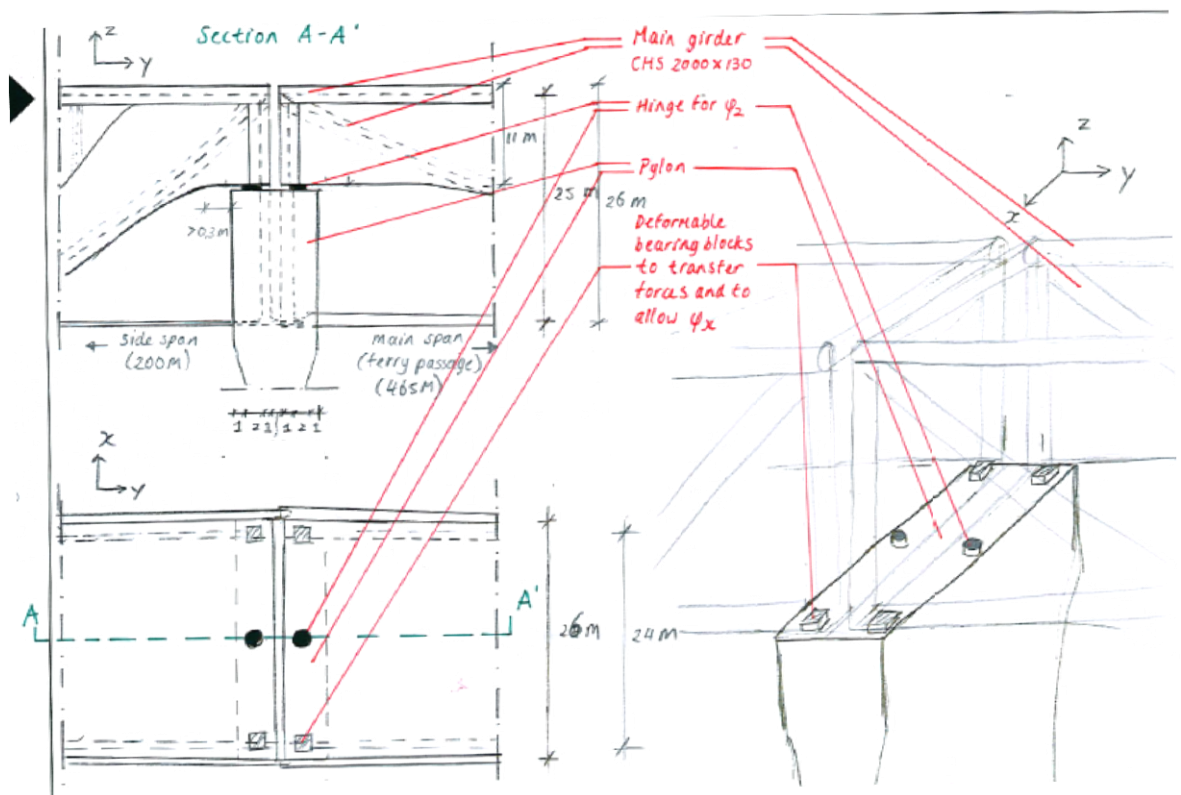 Section A-A'
z
y
Main girder
CHS 2000x130
Hinge for φz
Pylon
Deformable
bearing blocks
to transfer
forces and to
allow φx
11 m
25 m
26 m
>0,3m
side span
(200m)
main span
(ferry passage)
(465m)
1 2 1 1 2 1
z
y
x
x
y
A
A'
26m
24m